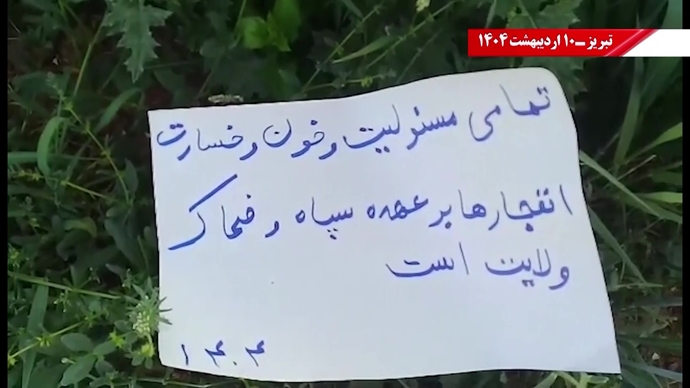 تبریز_۱۰ اردیبهشت ۱۴۰۴
تمامی مسئولیت و خون و خسارت
انفجارها بر عهده سپاه و ضحاک
ولایت است
۱۴۰۴